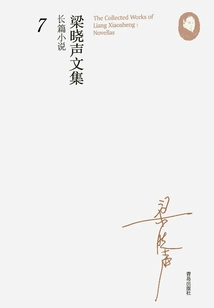 The Collected Works of
Liang Xiaosheng :
Novellas
梁晓声文集
长篇小说
7
梁晓声
青岛出版社